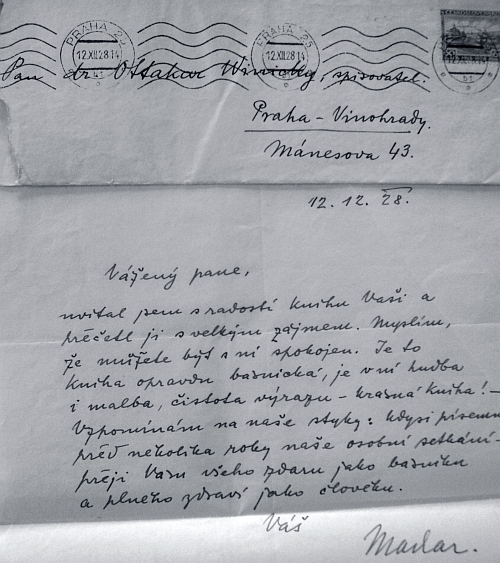 PRAHA 25
12.XII.28.14
PRAHA 25
12.XII.28.14
ČESKOSLOVENSKO
Pan dr. Ottakar Winický, spisovatel.
Praha - Vinohrady.
Mánesova 43.
12. 12. 28.
Vážený pane,
uvítal jsem s radostí knihu Vaši a
přečetl ji s velkým zájmem. Myslím,
že můžete být s ní spokojen. Je to
kniha opravdu básnická, je v ní hudba
i malba, čistota výrazu - krasná kniha! -
Vzpomínám na naše styky: kdysi písemné
před několika roky naše osobní setkání -
přeji Vám všeho zdaru jako básníku
a plného zdraví jako člověku.
Váš
Machar.